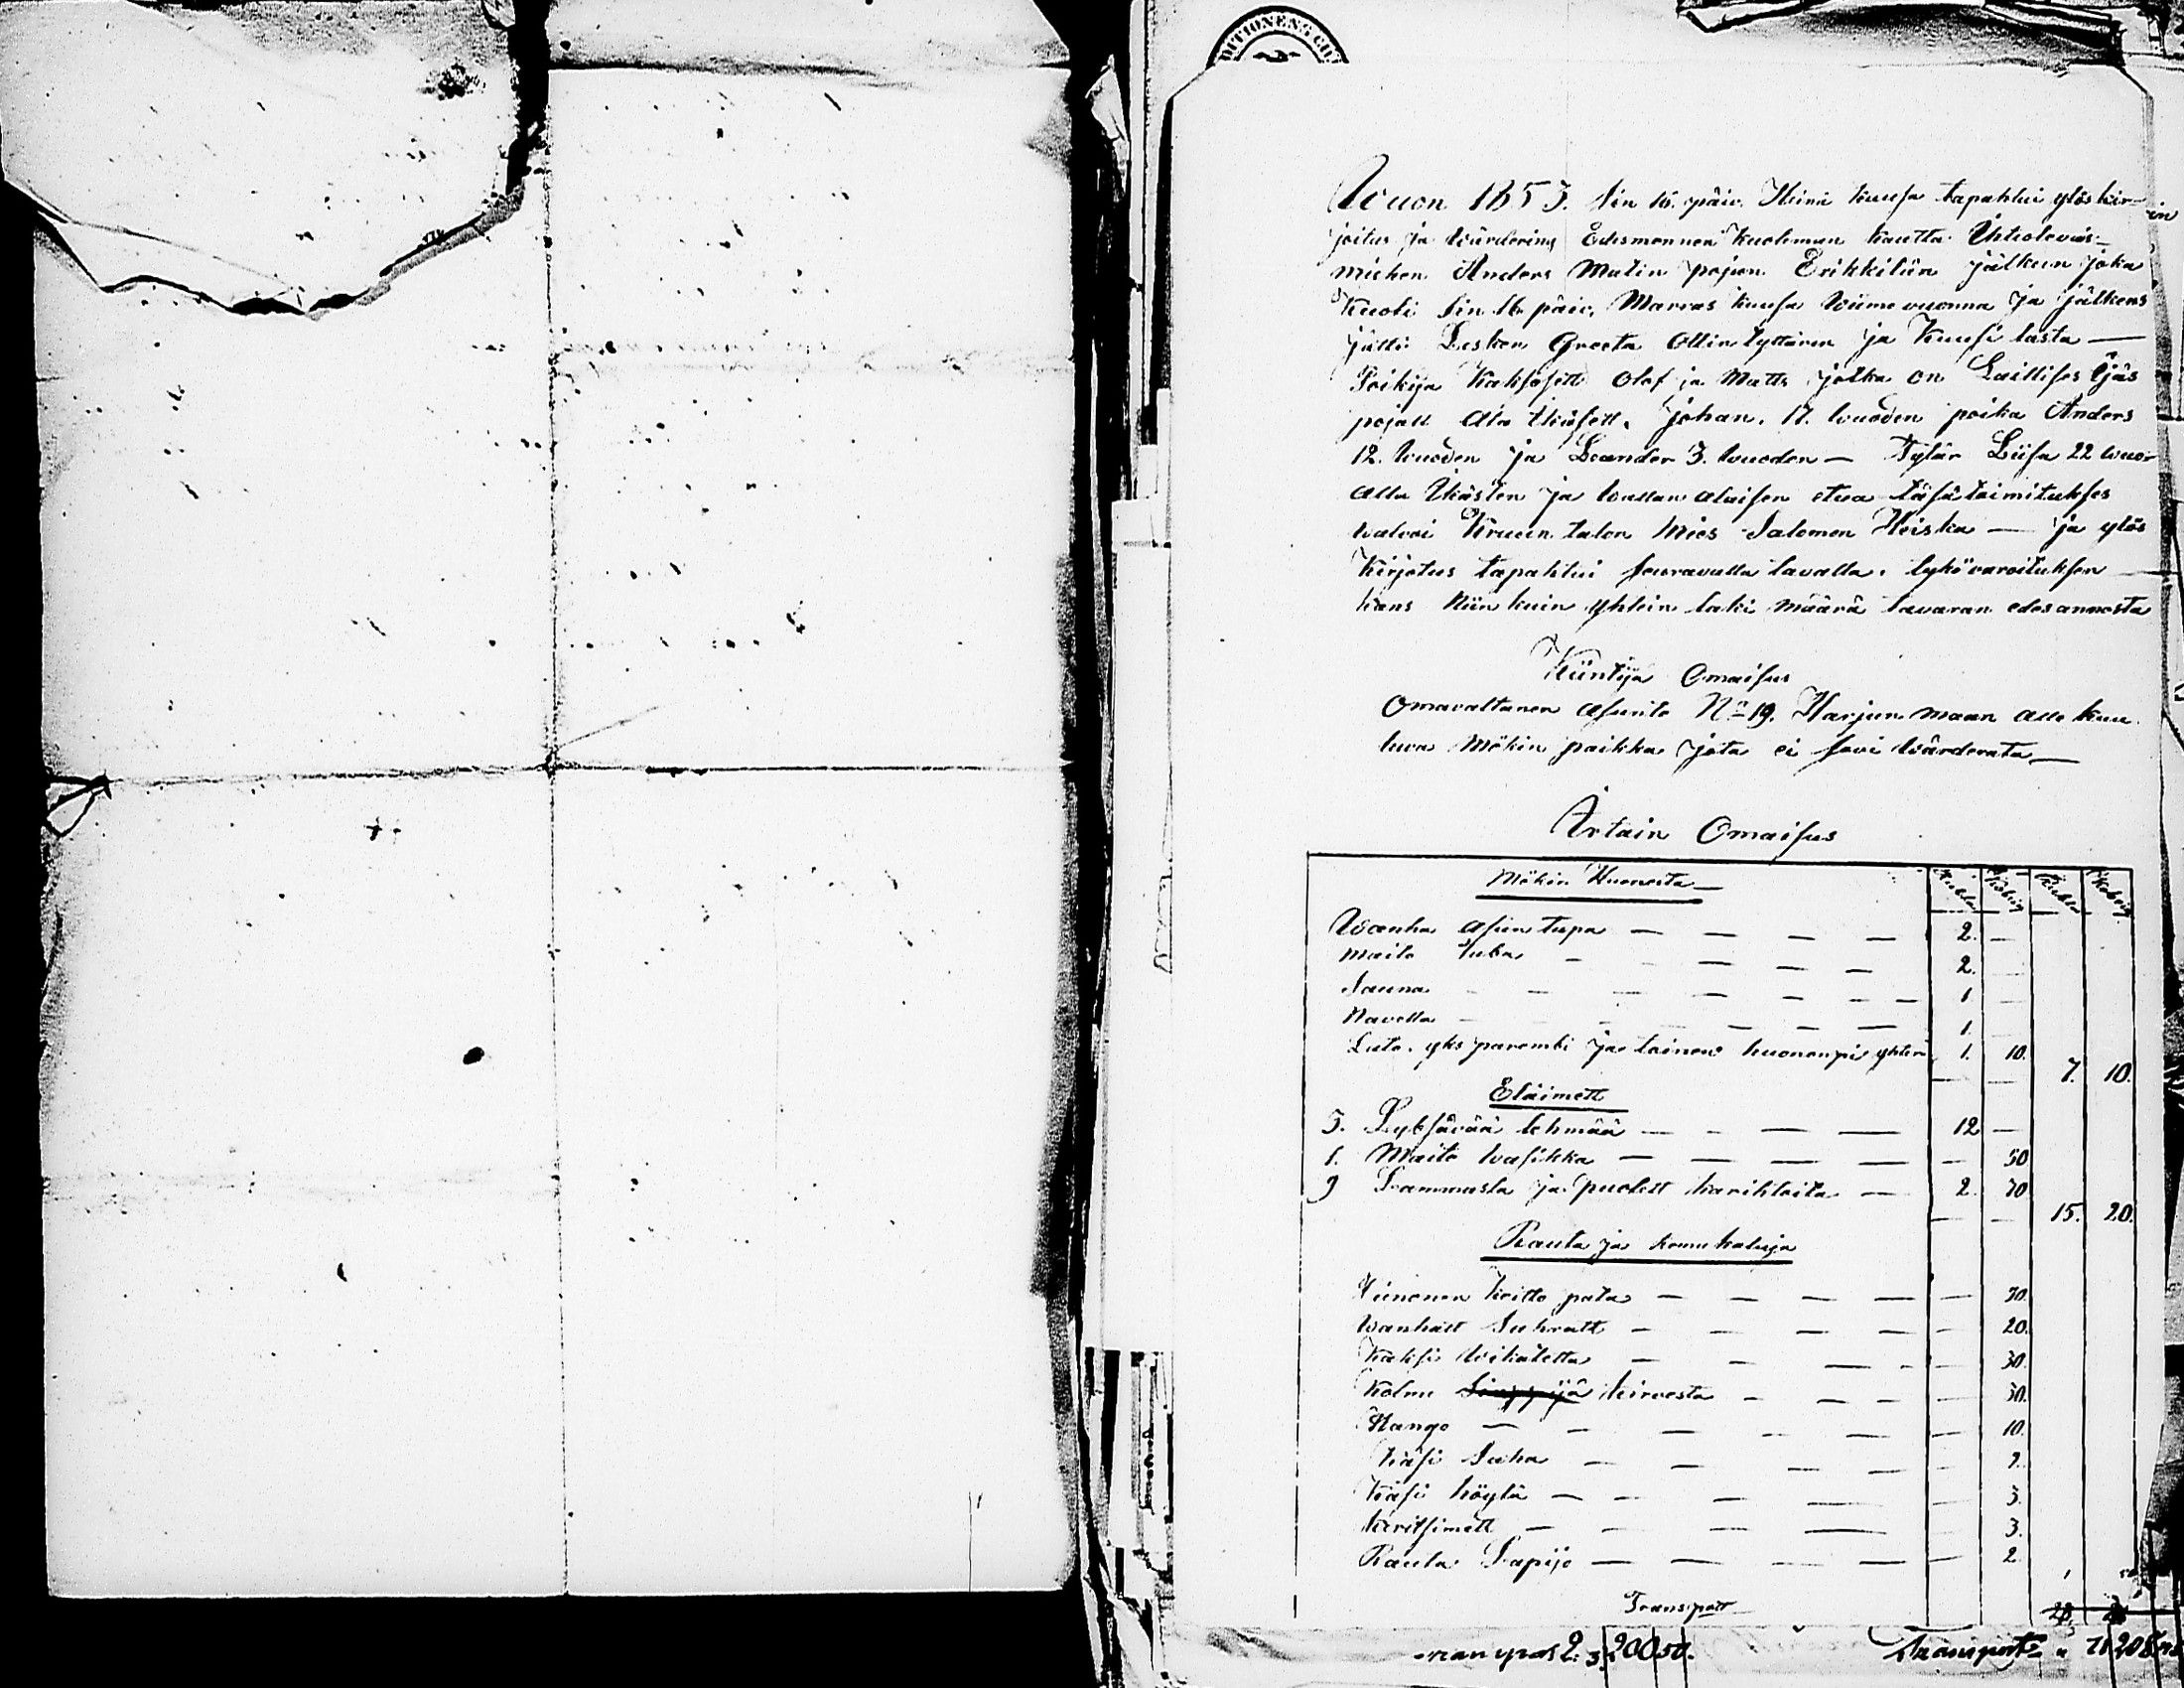 DITIONENS CO
Wuon 1853. Sin 16. päiv. Heinä kuusa tapahtui ylöskir-
joitus ja Wärdering Edesmennen Kuoleman kautta Ühtiolevais-
miehen Anders Matin pojan Erikkilän jälkeen joka
Kuoli Sin 16 päiv. Marras kuusa Wiime vuonna ja jälkens
jätti Lesken Greeta Ollin tyttären ja Kuusi lasta —
Poikija Kaksosett Olof ja Matts jotka on Laillises Ijäs
pojatt Ala Ikäsett. Johan. 17. Wuoden poika Anders
12. Wuoden ja Leander 3. Wuoden — Tytär Liisa 22 wuo-
Alla Ikästen ja Wallan alaisen etua täsä toimituksес
walvoi Kruun talon Mies Salomon Heiska — ja ylös
Kirjotus tapahtui seuravalla tavalla. lykövaroituksen
kans Niin kuin yhtein laki määrä tavaran edesannosta
Kiintijä Omaisus
Omavaltanen Asunto No 19. Harjun maan alle kuu
luva Mökin paikka jota ei sovi Wärderata —
Irtain Omaisus
Mökin Huonesta — Rubla Kobeig Rubla Kobeig
Wanha Asuin tupa — — — — 2. —
Maito tuba — — — — — 2. —
Sauna — — — — — — 1 —
Navetta — — — — — 1. —
Lato. yks parembi ja toinen huonompi yhten 1. 10. 7. 10.
Eläimett
3. Lybsävää lehmää — — — — 12 —
1. Maito Wasikka — — — — — 50
9 Lammasta ja puolett karihtoita — 2. 70 15. 20.
Rauta ja komu kaluja
Kiinonen keitto pata — — — — — 70.
Wanhatt Suhratt — — — — — 20.
Kaksi Wikatetta — — — — 30.
Kolme kirvesta — — — — 30.
Kango — — — — — — 10.
Käsi Saha — — — — —
Käsi höylä — — — — — 3.
keritsimett — — — — 3.
Rauta Lapijo — — — — — 2.
Transpott
Transport